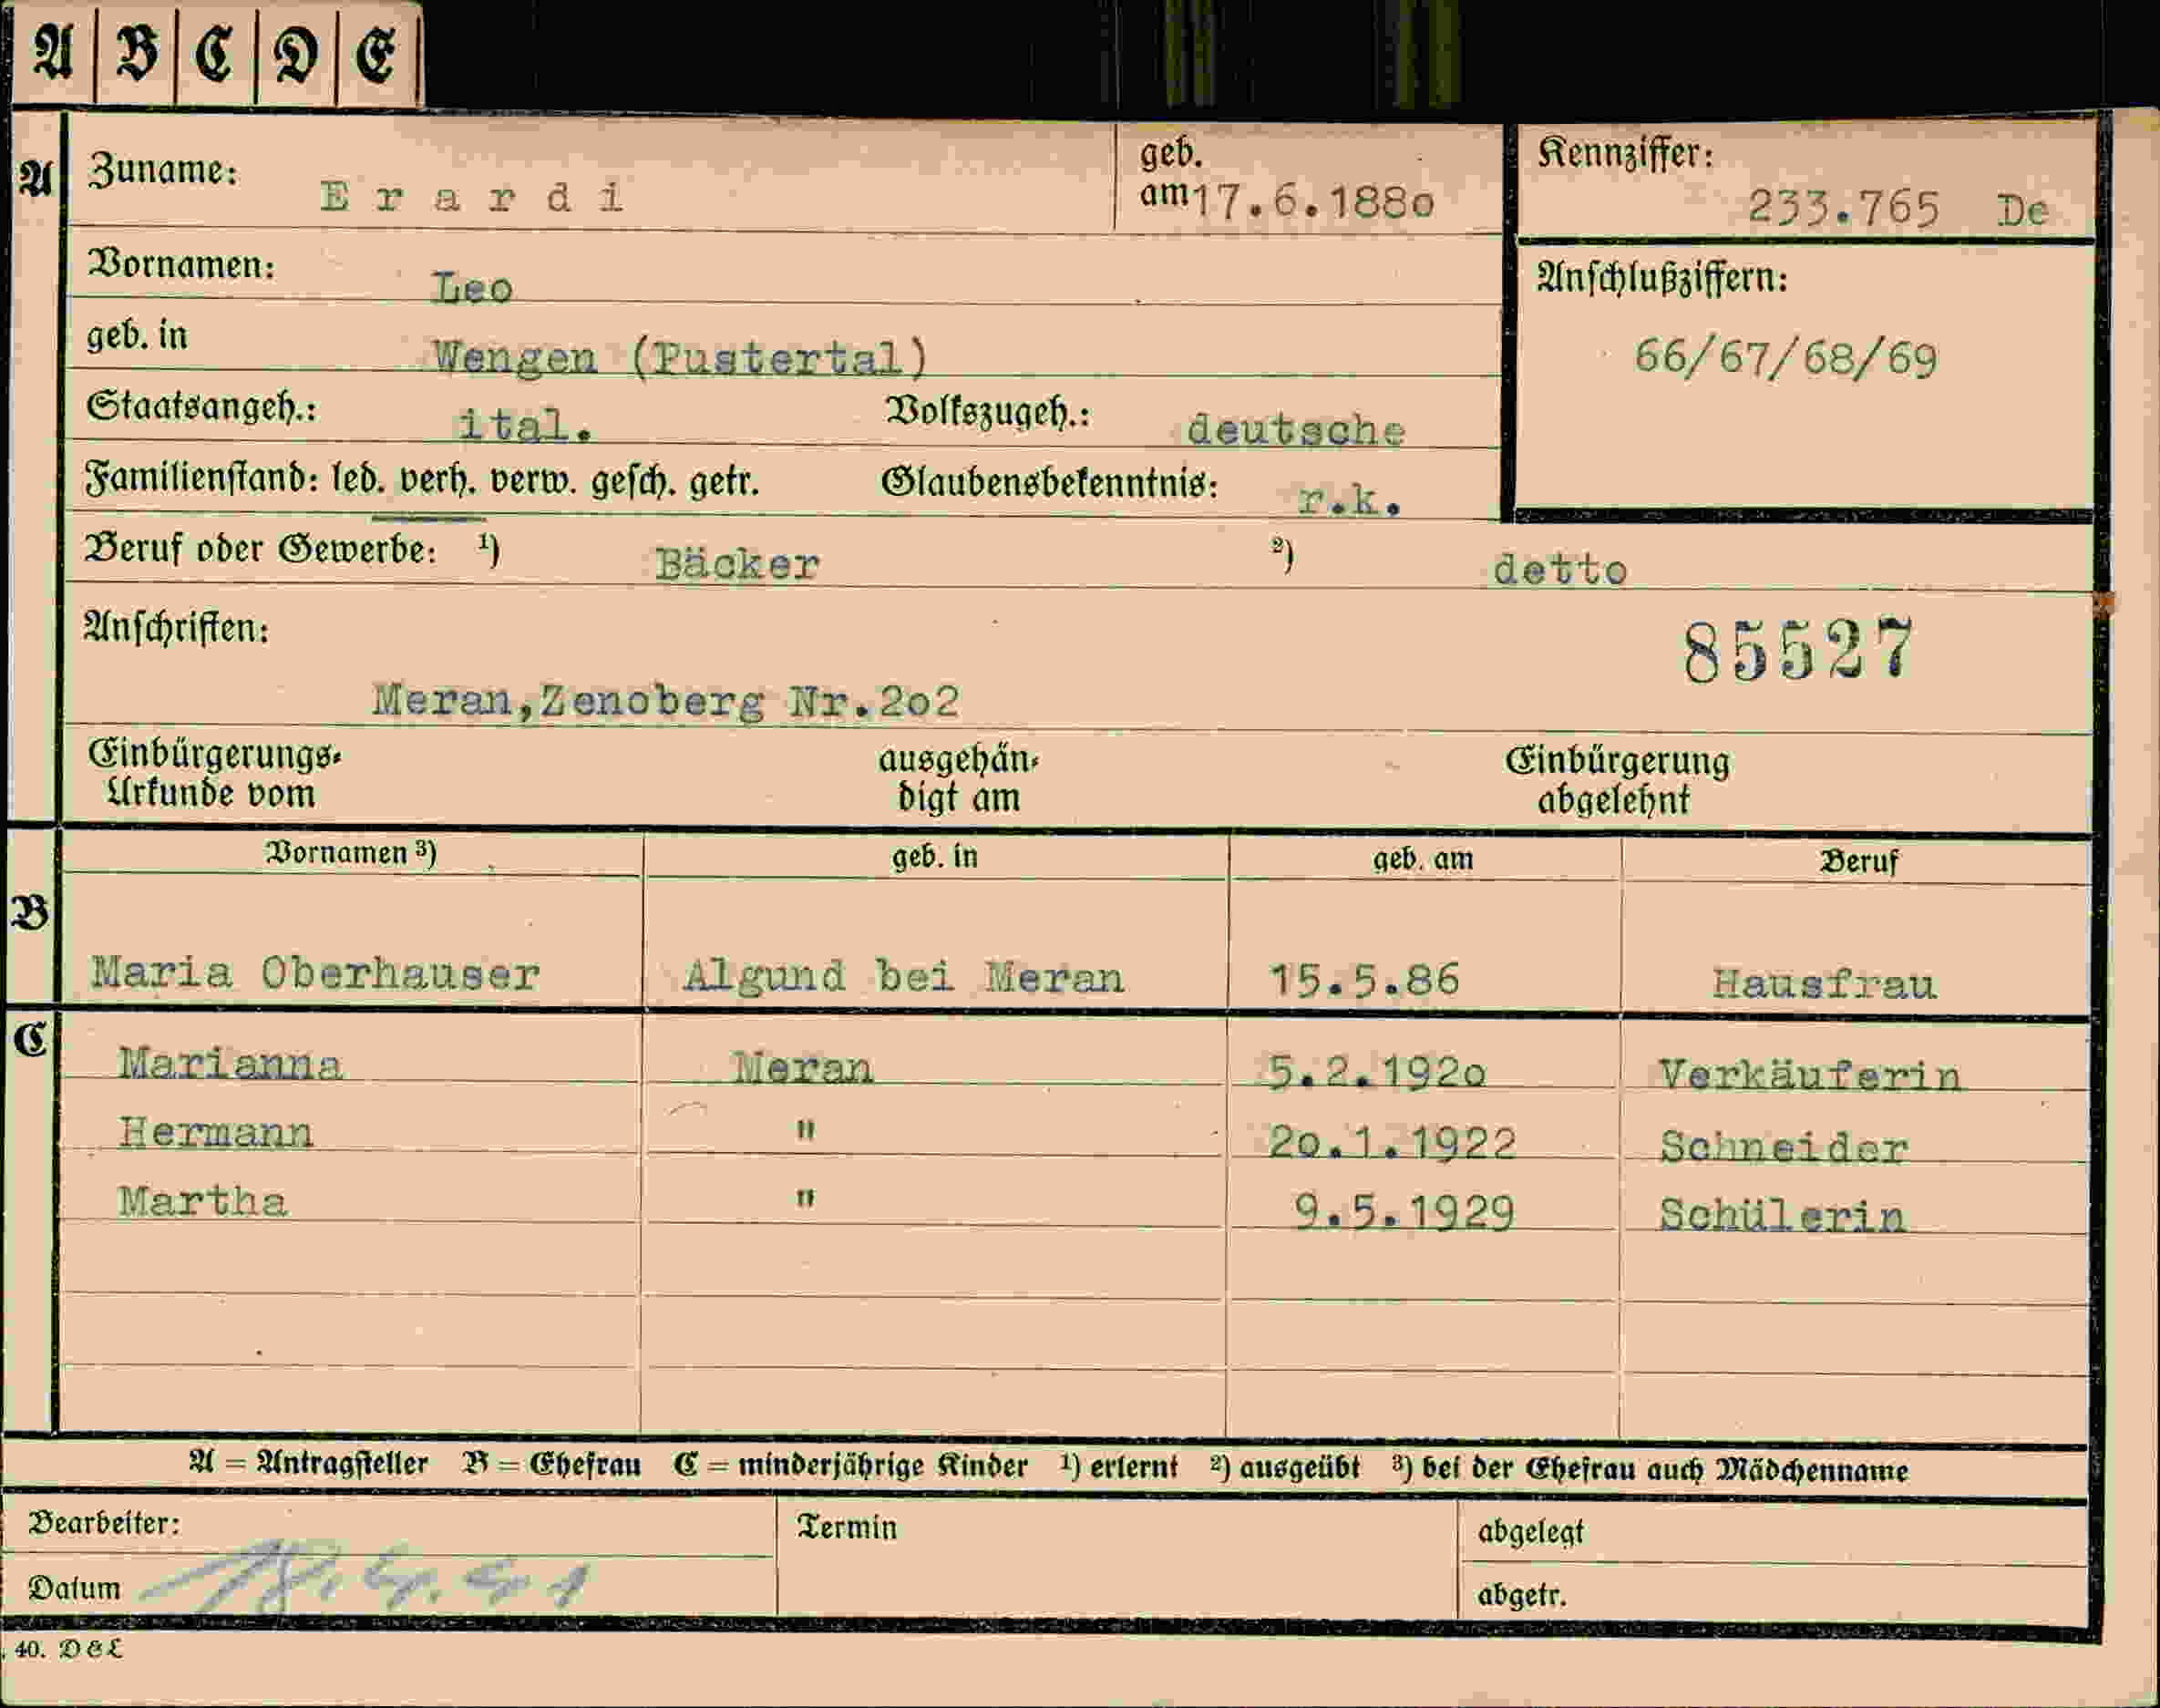 A B C D E
A Zuname: Erardi geb. am 17.6.188o Kennziffer: 233.765 De
Vornamen: Leo Anschlußziffern:
geb. in Wengen (Pustertal) 66/67/68/69
Staatsangeh.: ital. Volkszugeh.: deutsche
Familienstand: led. verh. verw. gesch. getr. Glaubensbekenntnis: r.k.
Beruf oder Gewerbe: ¹) Bäcker ²) detto
Anschriften: 85527
Meran,Zenoberg Nr.2o2
Einbürgerungs- ausgehän- Einbürgerung
Urkunde vom digt am abgelehnt
Vornamen ³) geb. in geb. am Beruf
B Maria Oberhauser Algund bei Meran 15.5.86 Hausfrau
C Marianna Meran 5.2.192o Verkäuferin
Hermann " 2o.1.1922 Schneider
Martha " 9.5.1929 Schülerin
A = Antragsteller B = Ehefrau C = minderjährige Kinder ¹) erlernt ²) ausgeübt ³) bei der Ehefrau auch Mädchenname
Bearbeiter: Termin abgelegt
Datum abgetr.
40. D&L